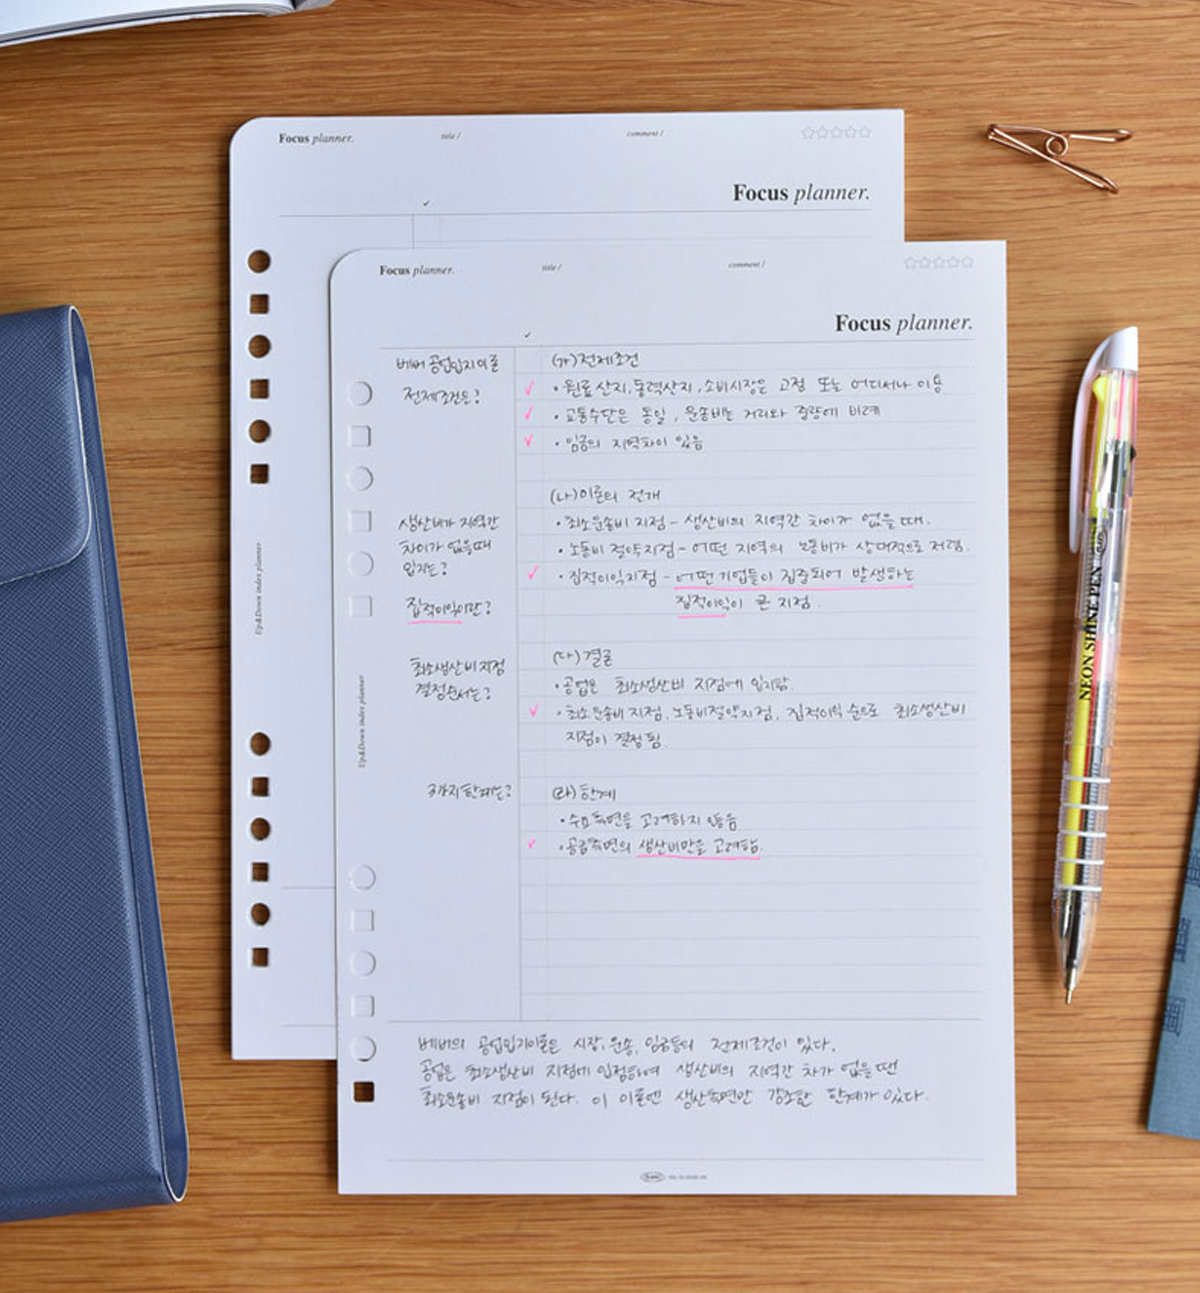 Focus planner.
title /
comment /
Focus planner.
Focus planner.
title /
comment /
Focus planner.
베버 공업입지이론
(가)전제조건
전제조건은?
• 원료산지, 동력산지, 소비시장은 고정 또는 어디서나 이용
• 교통수단은 동일, 운송비는 거리와 중량에 비례
• 임금의 지역차이 있음
(나)이론의 전개
생산비가 지역간
차이가 없을때
입지는?
• 최소운송비 지점 - 생산비의 지역간 차이가 없을 때.
• 노동비 절약지점 - 어떤 지역의 노동비가 상대적으로 저렴.
• 집적이익지점 - 어떤 기업들이 집중되어 발생하는
집적이익이 큰 지점.
집적이익이란?
(다)결론
최소생산비 지점
결정순서는?
• 공업은 최소생산비 지점에 입지함.
• 최소운송비 지점, 노동비절약지점, 집적이익 순으로 최소생산비
지점이 결정됨.
3가지 한계는?
(라)한계
• 수요측면을 고려하지 않음
• 공급측면의 생산비만을 고려함.
베버의 공업입지이론은 시장, 운송, 임금등의 전제조건이 있다.
공업은 최소생산비 지점에 입점하여 생산비의 지역간 차가 없을땐
최소운송비 지점이 된다. 이 이론엔 생산측면만 강조한 한계가 있다.
Up&Down index planner
Up&Down index planner
NEON SHINE PEN